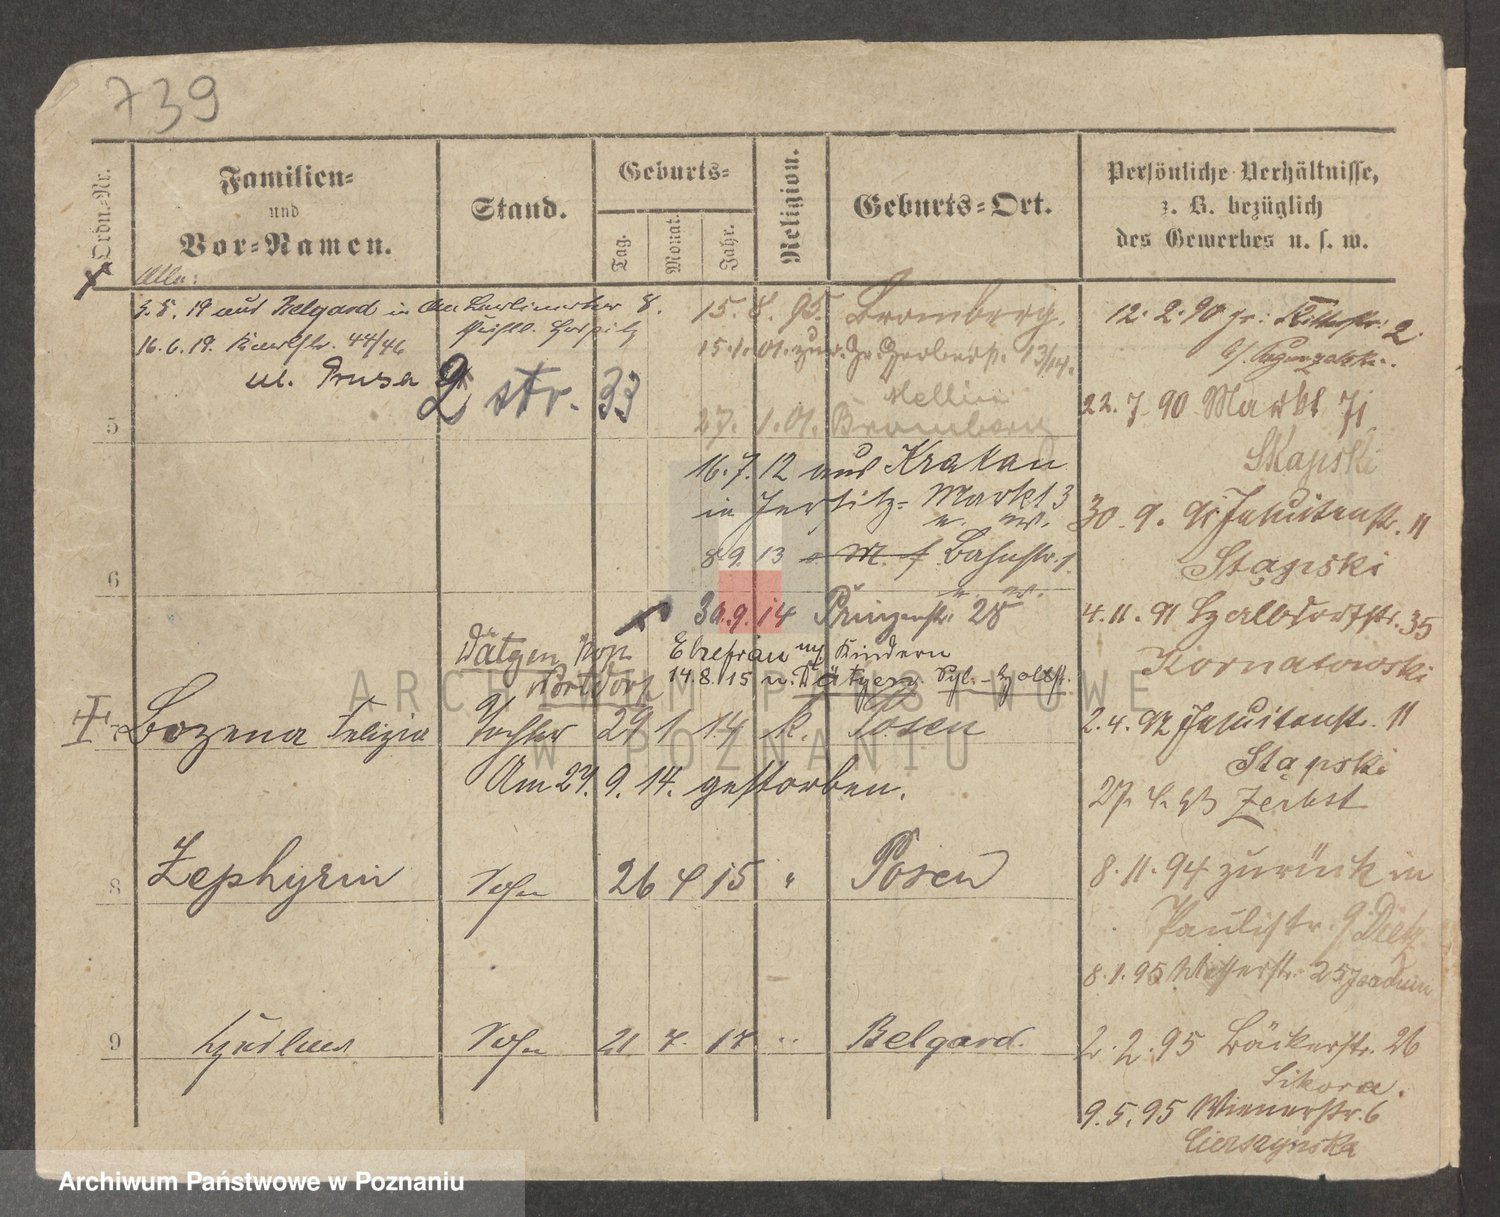 739
Ordn.-Nr.
Familien-
und
Vor-Namen.
Stand.
Geburts-
Tag.
Monat.
Jahr.
Religion.
Geburts-Ort.
Persönliche Verhältnisse,
z. B. bezüglich
des Gewerbes u. s. w.
Alle:
3.5.19 aus Belgard in 8.
16.6.19. 44/46
ul. Prusa 2 str. 33
15. 8. 95. Bromberg.
15.1.01. zur. 13/14.
Mellin
27. 1. 01. Bromberg
16.7.12 aus Krakau
in Jersitz- Markt 3
u. w.
8.9.13 Bahnstr. 1
u. w.
30.9.14 Prinzenstr. 28
Dätgen Ehefrau m/ Kindern
Nortdorf 14.8.15 n. Dätgen
5
6
Bozena Felizia Tochter 29 1 14 k. Posen
Am 27. 9. 14. gestorben.
8 Zephyrin Sohn 26 4 15 " Posen
9 Sohn 21 7 17 " Belgard.
12. 2. 90 Ritterstr. 2.
22. 7. 90 Markt 71
Skapski
30. 9. 91 Jesuitenstr. 11
Stąpski
4. 11. 91 Halbdorfstr. 35
Kornatowski
2. 4. 92 Jesuitenstr. 11
Stąpski
27. 4. 93 Zerbst
8. 11. 94 zurück in
Paulistr. 9
8. 1. 95 25
2. 2. 95 Bäckerstr. 26
Sikora.
9. 5. 95 Wienerstr. 6
Cierszynska
ARCHIWUM PAŃSTWOWE
W POZNANIU
Archiwum Państwowe w Poznaniu